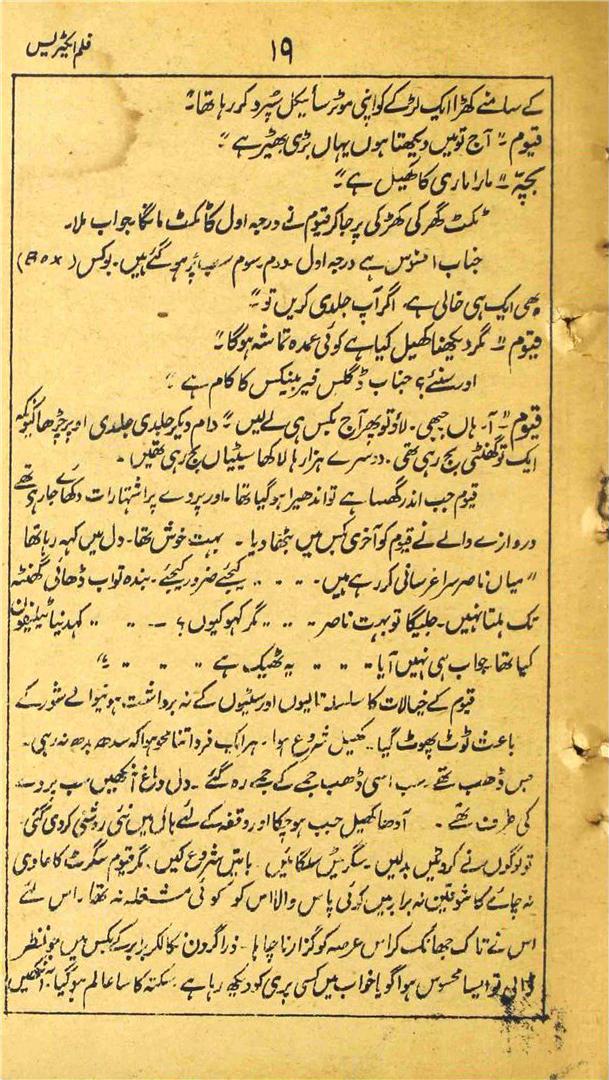 فلم ایکٹریس
۱۹
کے سامنے کھڑا ایک لڑکے کو اپنی موٹر سائیکل سُپرد کر رہا تھا۔"
قیوم۔" آج تو میں دیکھتا ہوں یہاں بڑی بھیڑ ہے"
بچہّ۔" مارا ماری کا کھیل ہے۔"
ٹکٹ گھر کی کھڑکی پر جا کر قیوم نے درجہ اول کا ٹکٹ مانگا جواب ملا۔
جناب افسوس ہے درجہ اول۔ دوم۔ سوم سب پُر ہو گئے ہیں۔ بوکس (Box)
بھی ایک ہی خالی ہے۔ اگر آپ جلدی کریں تو"
قیوم۔" مگر دیکھنا کھیل کیا ہے کوئی عمدہ تماشہ ہوگا۔"
اور سنئے؟ جناب ڈگلس فیر بینکس کا کام ہے"
قیوم۔" آ۔ ہاں جبھی۔ لاؤ تو پھر آج بکس ہی لے لیں" دام دیکر جلدی جلدی اوپر چڑھا کیونکہ
ایک تو گھنٹی بج رہی تھی۔ دوسرے ہزار ہا لاکھا سیٹیاں بج رہی تھیں۔
قیوم جب اندر گھسا ہے تو اندھیرا ہو گیا تھا۔ اور پردے پر اشتہارات دکھائے جا رہے تھے
دروازے والے نے قیوم کو آخری بکس میں بٹھا دیا۔ بہت خوش تھا۔ دل میں کہہ رہا تھا
"میاں ناصر سراغرسانی کر رہے ہیں۔ . . . . کیجئے ضرور کیجئے۔ بندہ تو اب ڈھائی گھنٹہ
تک ہلتا نہیں۔ جلیگا تو بہت ناصر . . . . مگر کہو کیوں؟ — . . . . کہدنیا ٹیلیفون
کیا تھا جواب ہی نہیں آیا . . . . یہ ٹھیک ہے . . . . . "
قیوم کے خیالات کا سلسلہ تالیوں اور سیٹیوں کے نہ برداشت ہونیوالے شور کے
باعث ٹوٹ پھوٹ گیا۔ کھیل شروع ہوا۔ ہر ایک فرد اتنا محو ہوا کہ سدھ بدھ نہ رہی۔
جس ڈھب تھے سب اسی ڈھب جمے کے جمے رہ گئے۔ دل دماغ آنکھیں سب پردے
کی طرف تھے۔ آدھا کھیل جب ہو چکا اور وقفہ کے لئے ہال میں نئی روشنی کر دی گئی
تو لوگوں نے کروٹیں بدلیں۔ سگریٹیں سلگائیں۔ باتیں شروع کیں۔ مگر قیوم سگرٹ کا عادی
نہ چائے کا شوقین نہ برابر میں کوئی پاس والا اس کو کوئی مشغلہ نہ تھا۔ اس لئے
اس نے تاک جھانک کر اس عرصہ کو گزارنا چاہا۔ ذرا گردن نکالکر برابر کے بکس میں جو نظر
ڈالی تو ایسا محسوس ہوا گویا خواب میں کسی پری کو دیکھ رہا ہے۔ سکتہ کا سا عالم ہو گیا۔ آنکھیں